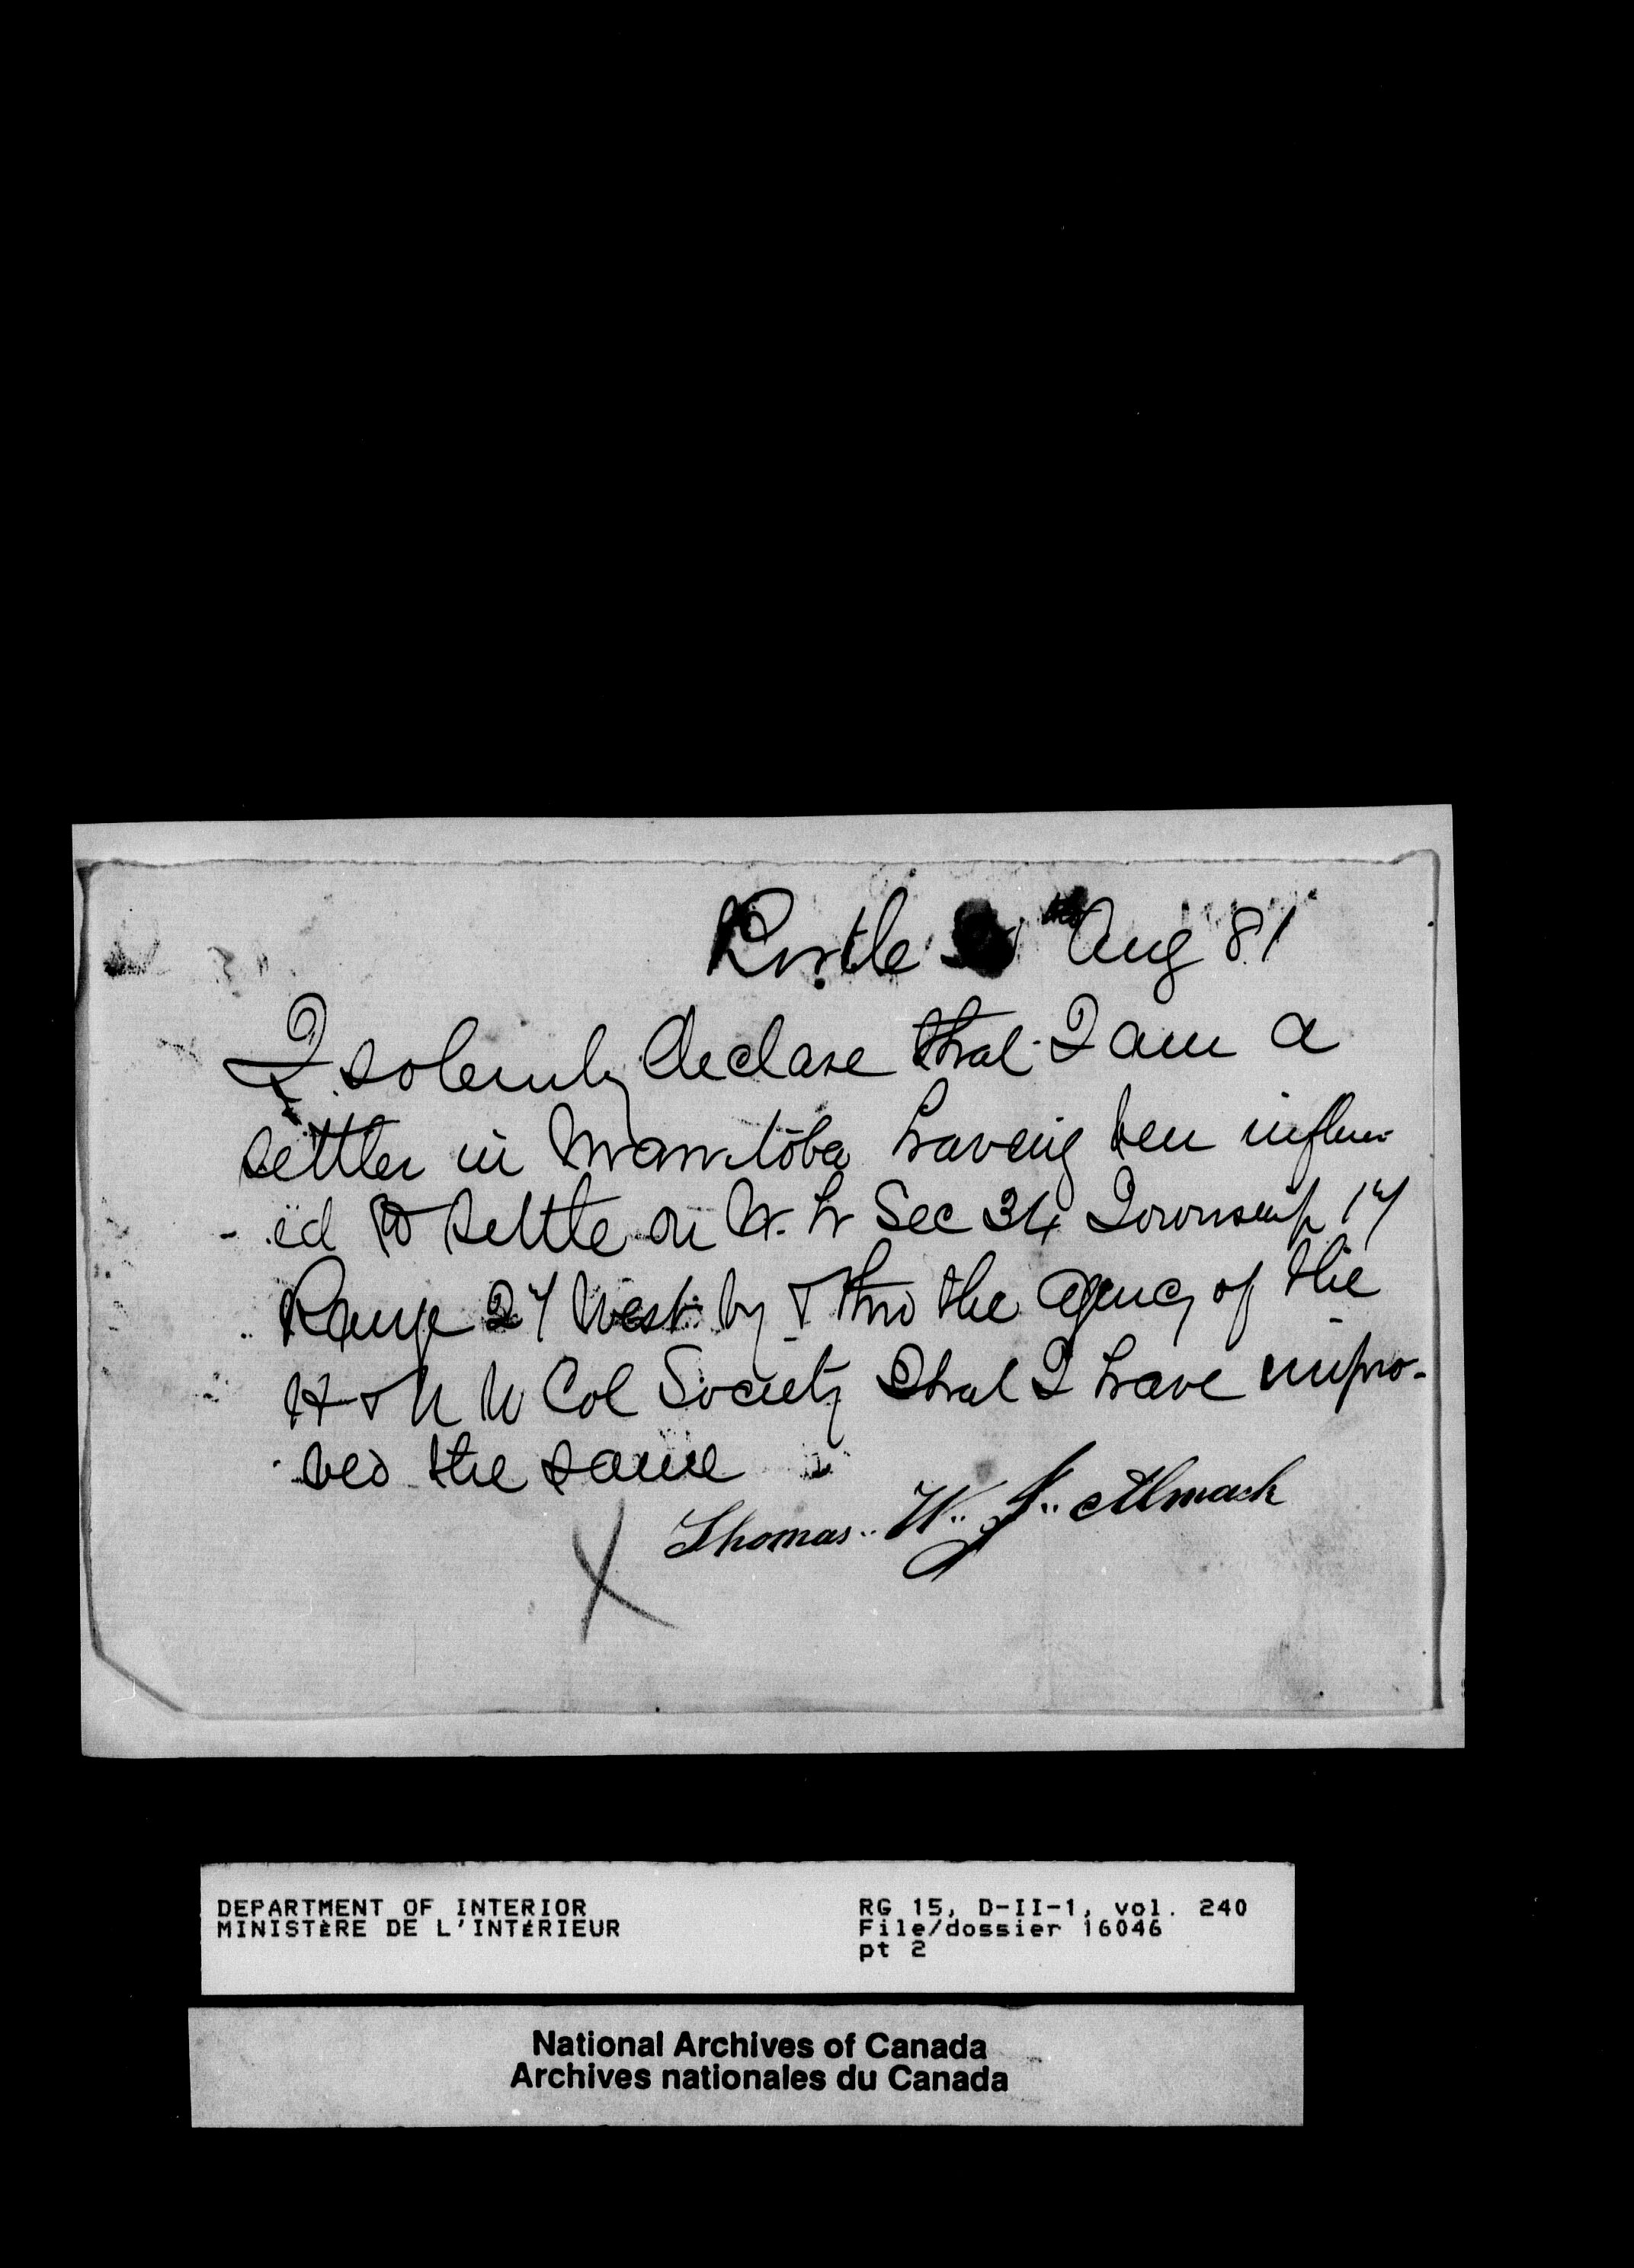 Birtle Aug 81
I solemnly declare that I am a
settler in Manitoba haveing been influen-
ced to settle on N. W Sec 34 Township 17
Range 27 West by & thro the agency of the
H & N W Col Society that I have impro-
ved the same
Thomas W. J. Almack
X
DEPARTMENT OF INTERIOR
MINISTÈRE DE L'INTÉRIEUR
RG 15, D-II-1, vol. 240
File/dossier 16046
pt 2
National Archives of Canada
Archives nationales du Canada